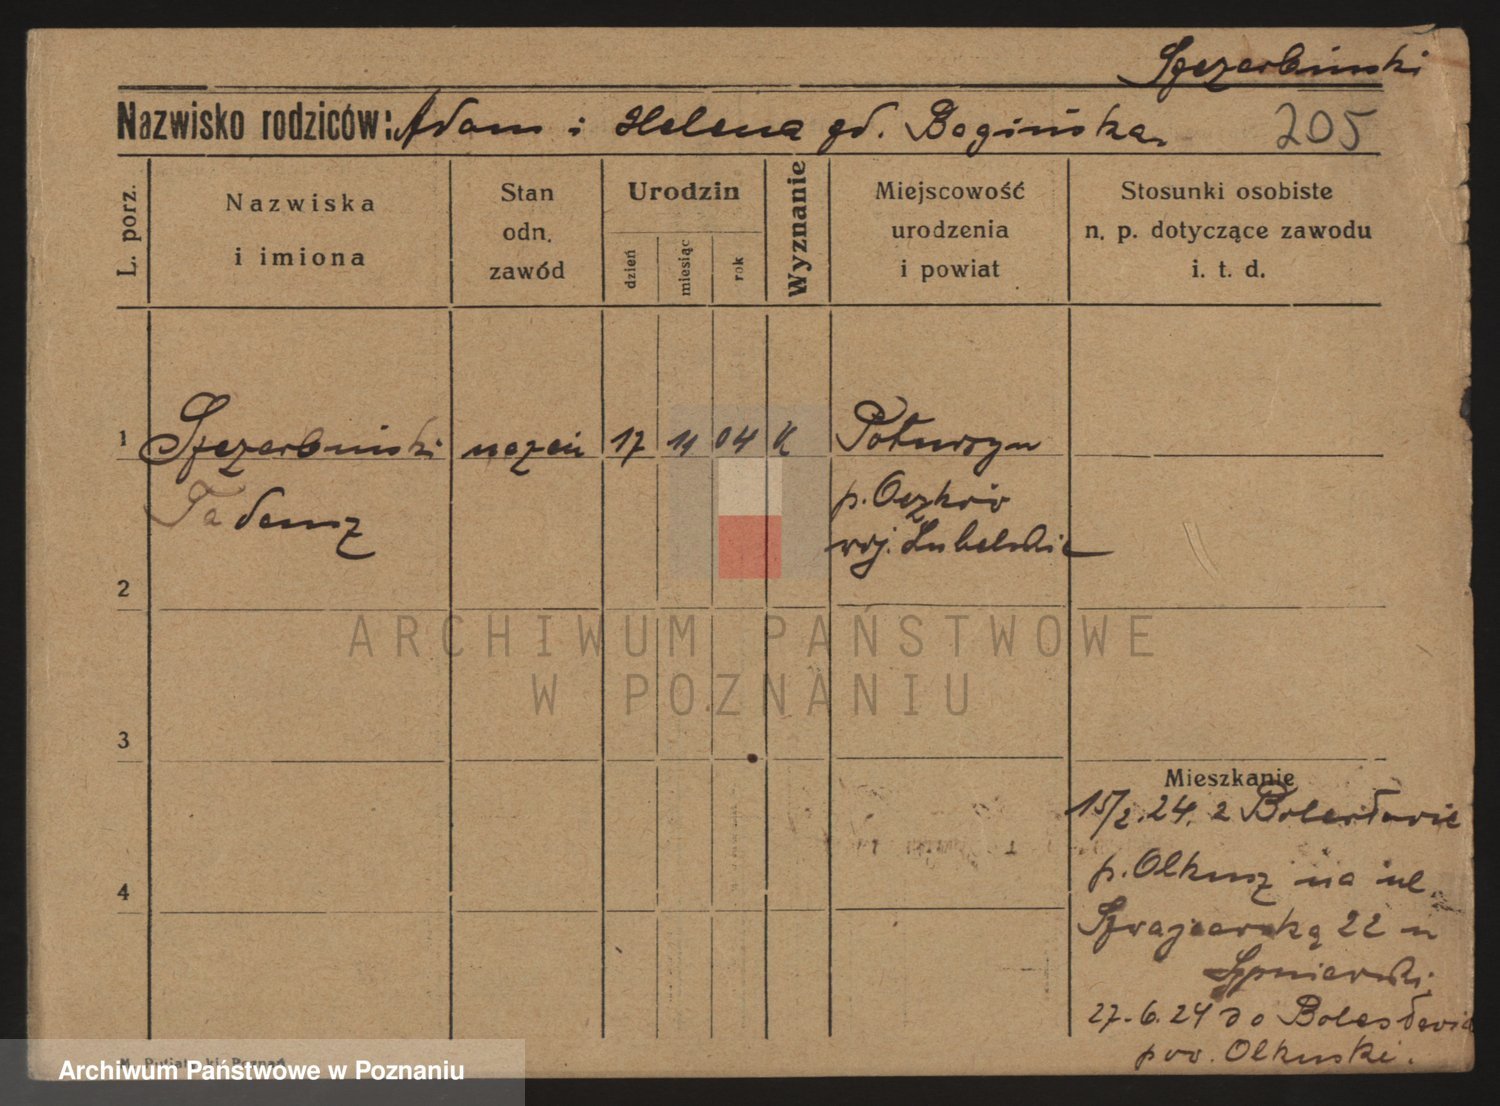 Szczerbiński
Nazwisko rodziców: Adam i Helena zd. Bogińska
205
L. porz.
Nazwiska
i imiona
Stan
odn.
zawód
Urodzin
dzień
miesiąc
rok
Wyznanie
Miejscowość
urodzenia
i powiat
Stosunki osobiste
n. p. dotyczące zawodu
i. t. d.
1 Szczerbiński uczeń 17 11 04 K Poturzyn
Tadeusz
woj. Lubelskie
2
3
4
ARCHIWUM PAŃSTWOWE
W POZNANIU
Mieszkanie
15/2.24. z Bolesławie
p. Olkusz na ul.
Szwajcarską 22 u
27.6.24 do Bolesławia
pow. Olkuski.
Archiwum Państwowe w Poznaniu